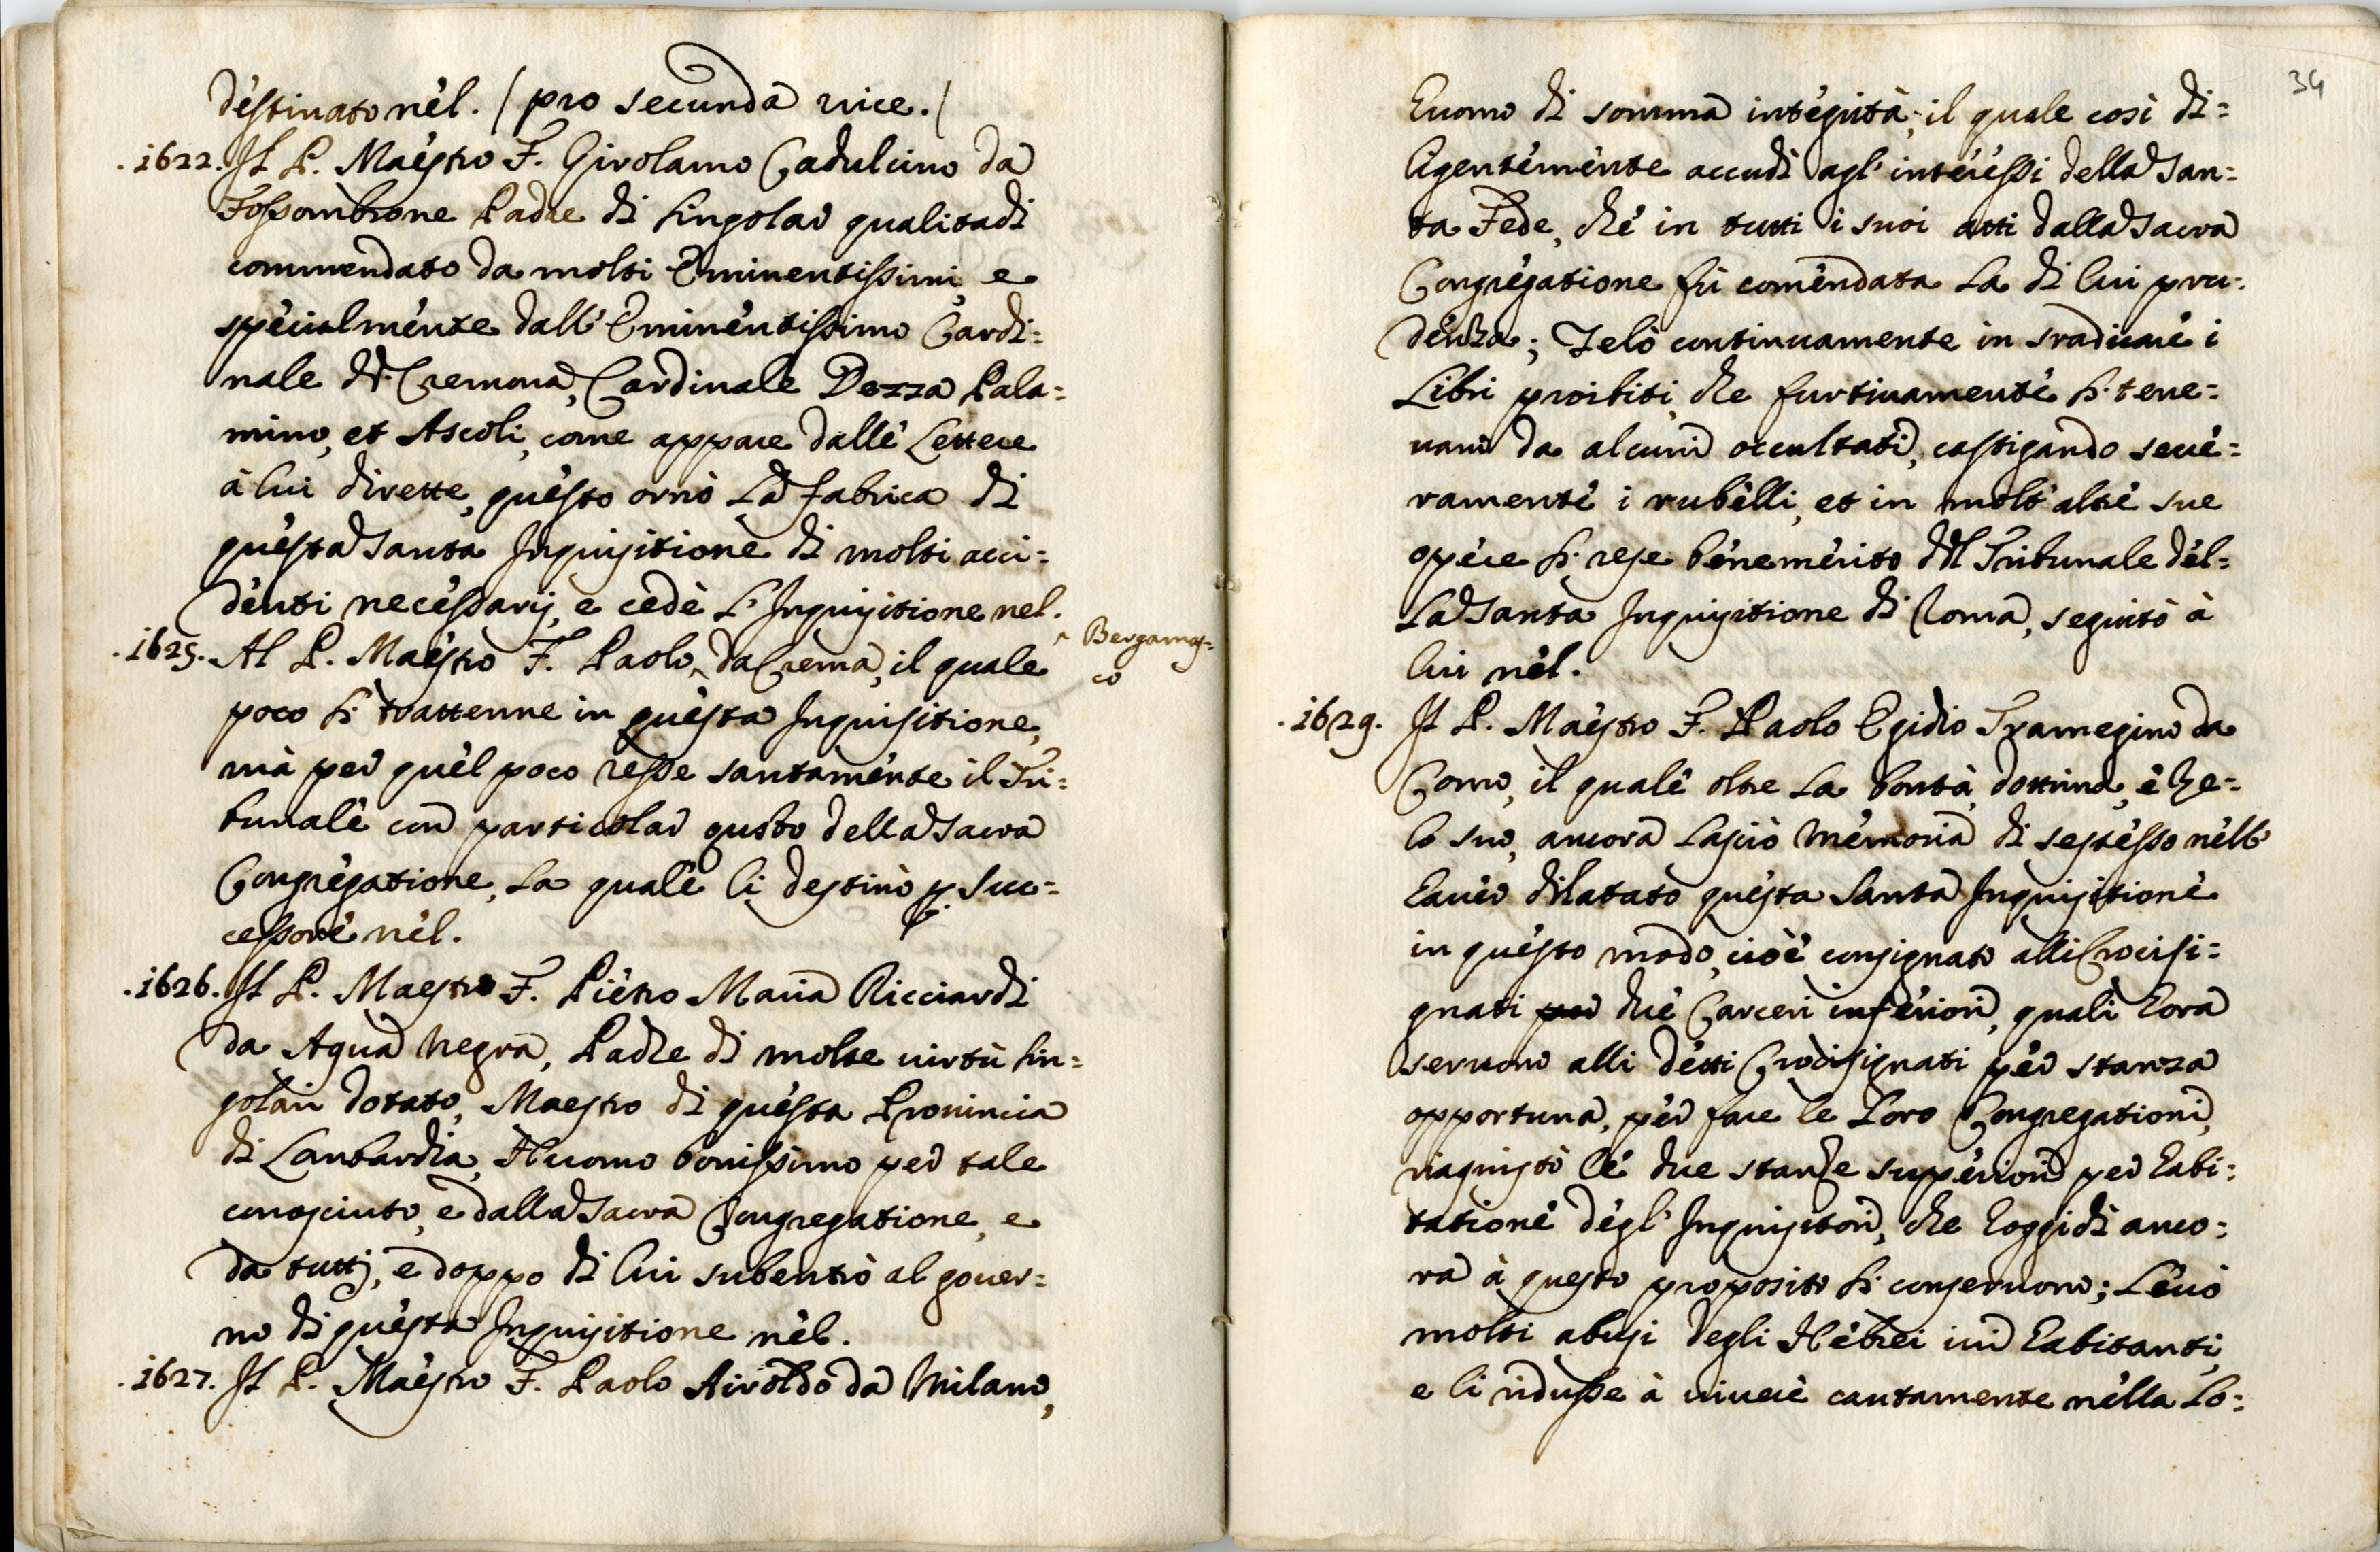 destinato nel. / pro secunda vice. /
.1622. Il P. Maestro F. Girolamo Cadulcino da
Fossombrone Padre di singolar qualitadi
commendato da molti Eminentissimi, e
specialmente dall' Eminentissimo Cardi=
nale di Cremona, Cardinale Dezza Pala=
mino, et Ascoli, come appare dalle Lettere
à lui dirette, questo ornò la fabrica di
questa Santa Inquisitione di molti acci=
denti necessarij, e cedè l'Inquisitione nel.
.1625. Al P. Maestro F. Paolo ^ da Crema, il quale
^ Bergamas=
co
poco si trattenne in questa Inquisitione,
mà per quel poco resse santamente il Tri=
bunale con particolar gusto della Sacra
Congregatione, la quale li destinò p. suc=
cessore nel.
.1626. Il P. Maestro F. Pietro Maria Ricciardi
da Aqua Negra, Padre di molte virtù sin=
golari dotato, Maestro di questa Provincia
di Lombardia, Huomo bonissimo per tale
conosciuto, e dalla Sacra Congregatione, e
da tutti, e doppo di lui subentrò al gover=
no di questa Inquisitione nel.
.1627. Il P. Maestro F. Paolo Airoldo da Milano,
34
huomo di somma integrità, il quale così di=
ligentemente accudì agl' interessi della San=
ta Fede, che in tutti i suoi atti dalla Sacra
Congregatione fù comendata la di lui pru=
denza; Zelò continuamente in sradicare i
Libri proibiti, che furtivamente si tene=
vano da alcuni occultati, castigando seve=
ramente i rubelli, et in molt' altre sue
opere si rese benemerito del Tribunale del=
la Santa Inquisitione di Roma, seguitò à
lui nel.
.1629. Il P. Maestro F. Paolo Egidio Tramegino da
Como, il quale oltre la bontà, dottrina, e ze=
lo suo, ancora lasciò memoria di se stesso nell'
haver dilatato questa Santa Inquisitione
in questo modo, cioè consignato alli Crocisi=
gnati per due Carceri inferiori, quali hora
servono alli detti Crocisignati per stanza
opportuna, per fare le loro Congregationi,
riaquistò le due stanze superiori per habi=
tatione degl' Inquisitori, che hoggidì anco=
ra à questo proposito si conservono; Levò
molti abusi degli Hebrei ivi habitanti,
e li ridusse à vivere cautamente nella lo=